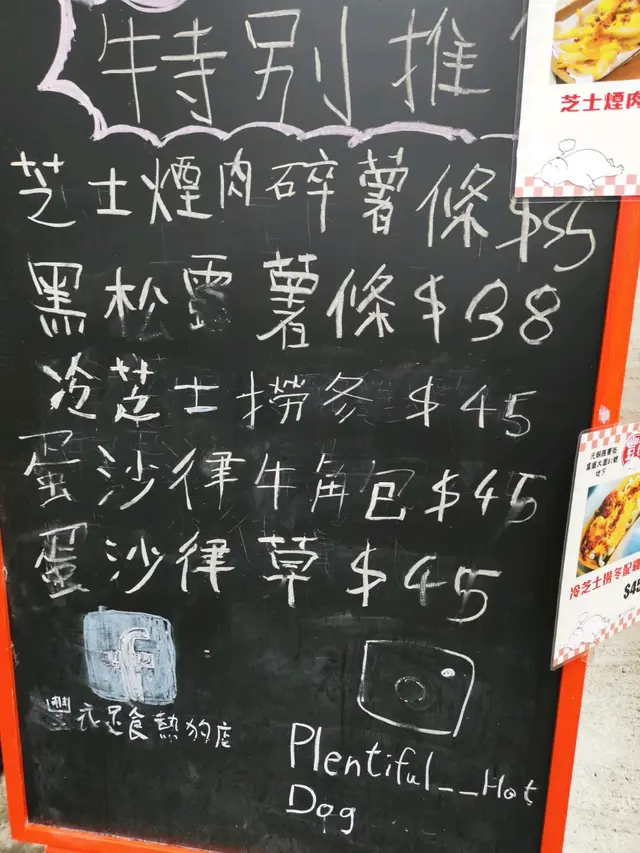 特別推
芝士煙肉
芝士煙肉碎薯條 $35
黑松露薯條 $38
冷芝士撈冬 $45
蛋沙律牛角包 $45
蛋沙律草 $45
冷芝士撈冬配雞
$45
豐衣足食熱狗店
Plentiful__Hot
Dog